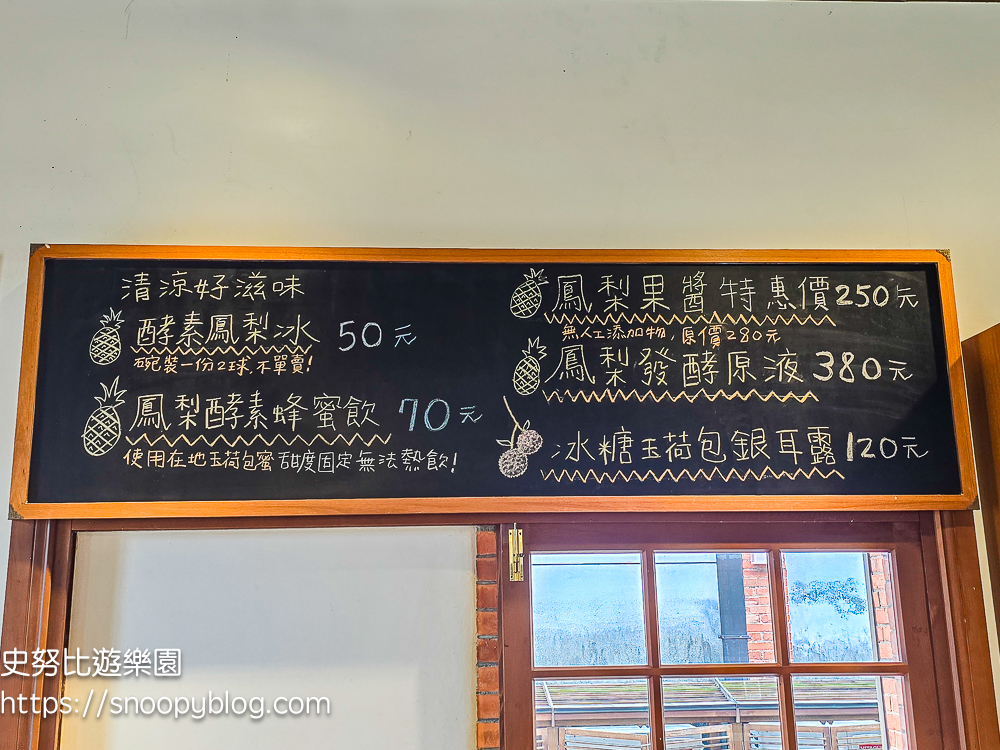 清涼好滋味
酵素鳳梨冰 50元
碗裝一份2球,不單賣!
鳳梨酵素蜂蜜飲 70元
使用在地玉荷包蜜 甜度固定無法熱飲!
鳳梨果醬特惠價250元
無人工添加物, 原價280元
鳳梨發酵原液 380元
冰糖玉荷包銀耳露 120元
史努比遊樂園
https://snoopyblog.com